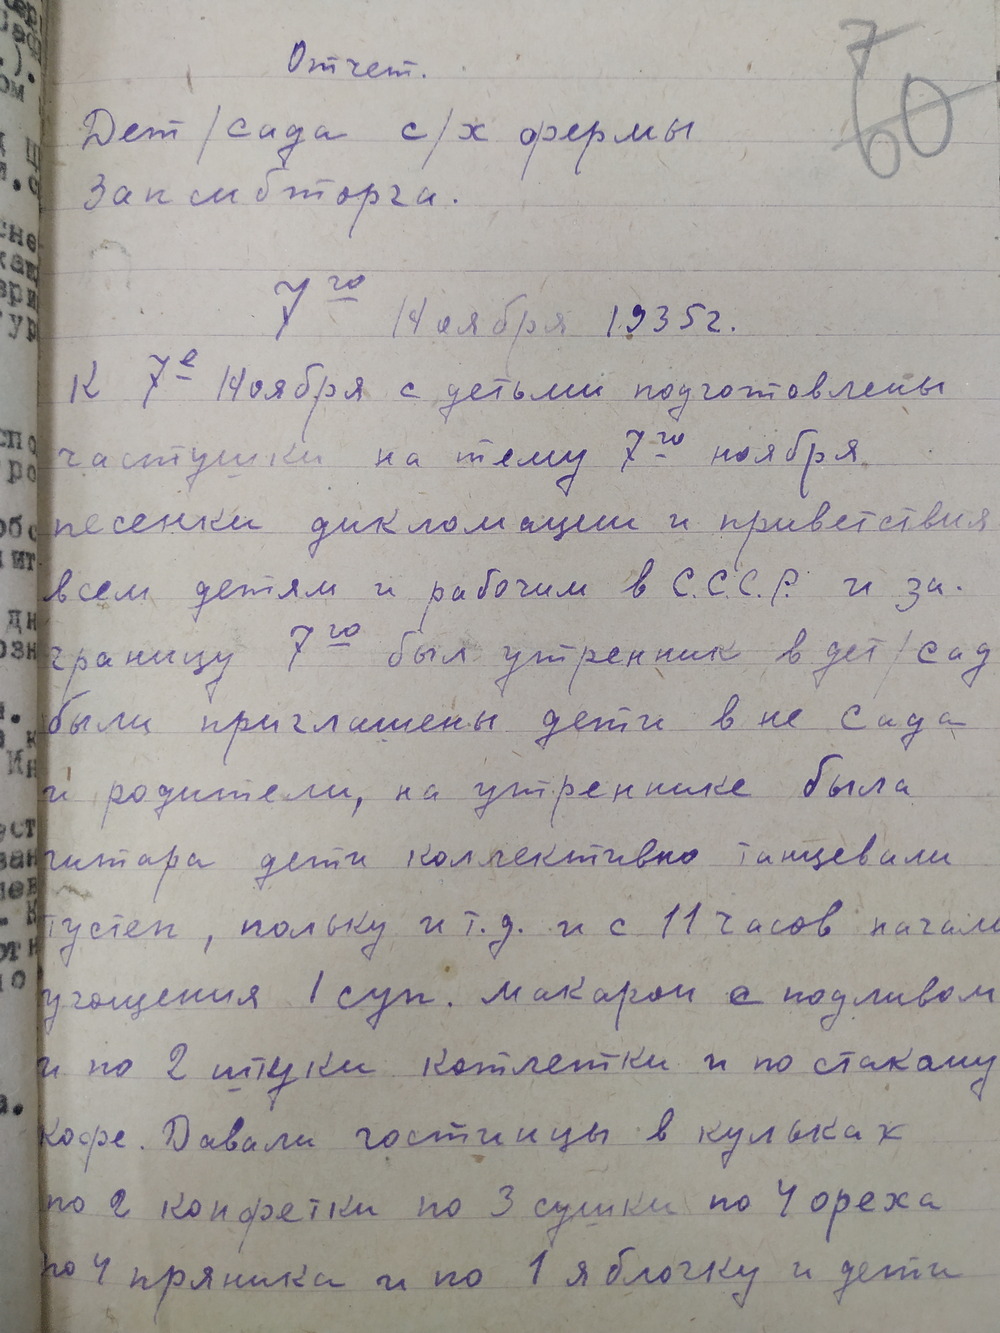 7
60
Отчет.
Дет/сада с/х фермы
Запсибторга.
7го Ноября 1935г.
К 7е Ноября с детьми подготовлены
частушки на тему 7го ноября
песенки дикломации и приветствия
всем детям и рабочим в С.С.С.Р. и за.
границу 7го был утренник в дет/сад
были приглашены дети вне сада
и родители, на утреннике была
гитара дети коллективно танцевали
тустеп, польку и т.д. и с 11 часов начали
угощения 1 суп. макарон с подливом
и по 2 штуки котлетки и по стакану
кофе. Давали гостинцы в кульках
по 2 конфетки по 3 сушки по 4 ореха
по 4 пряника и по 1 яблочку и дети